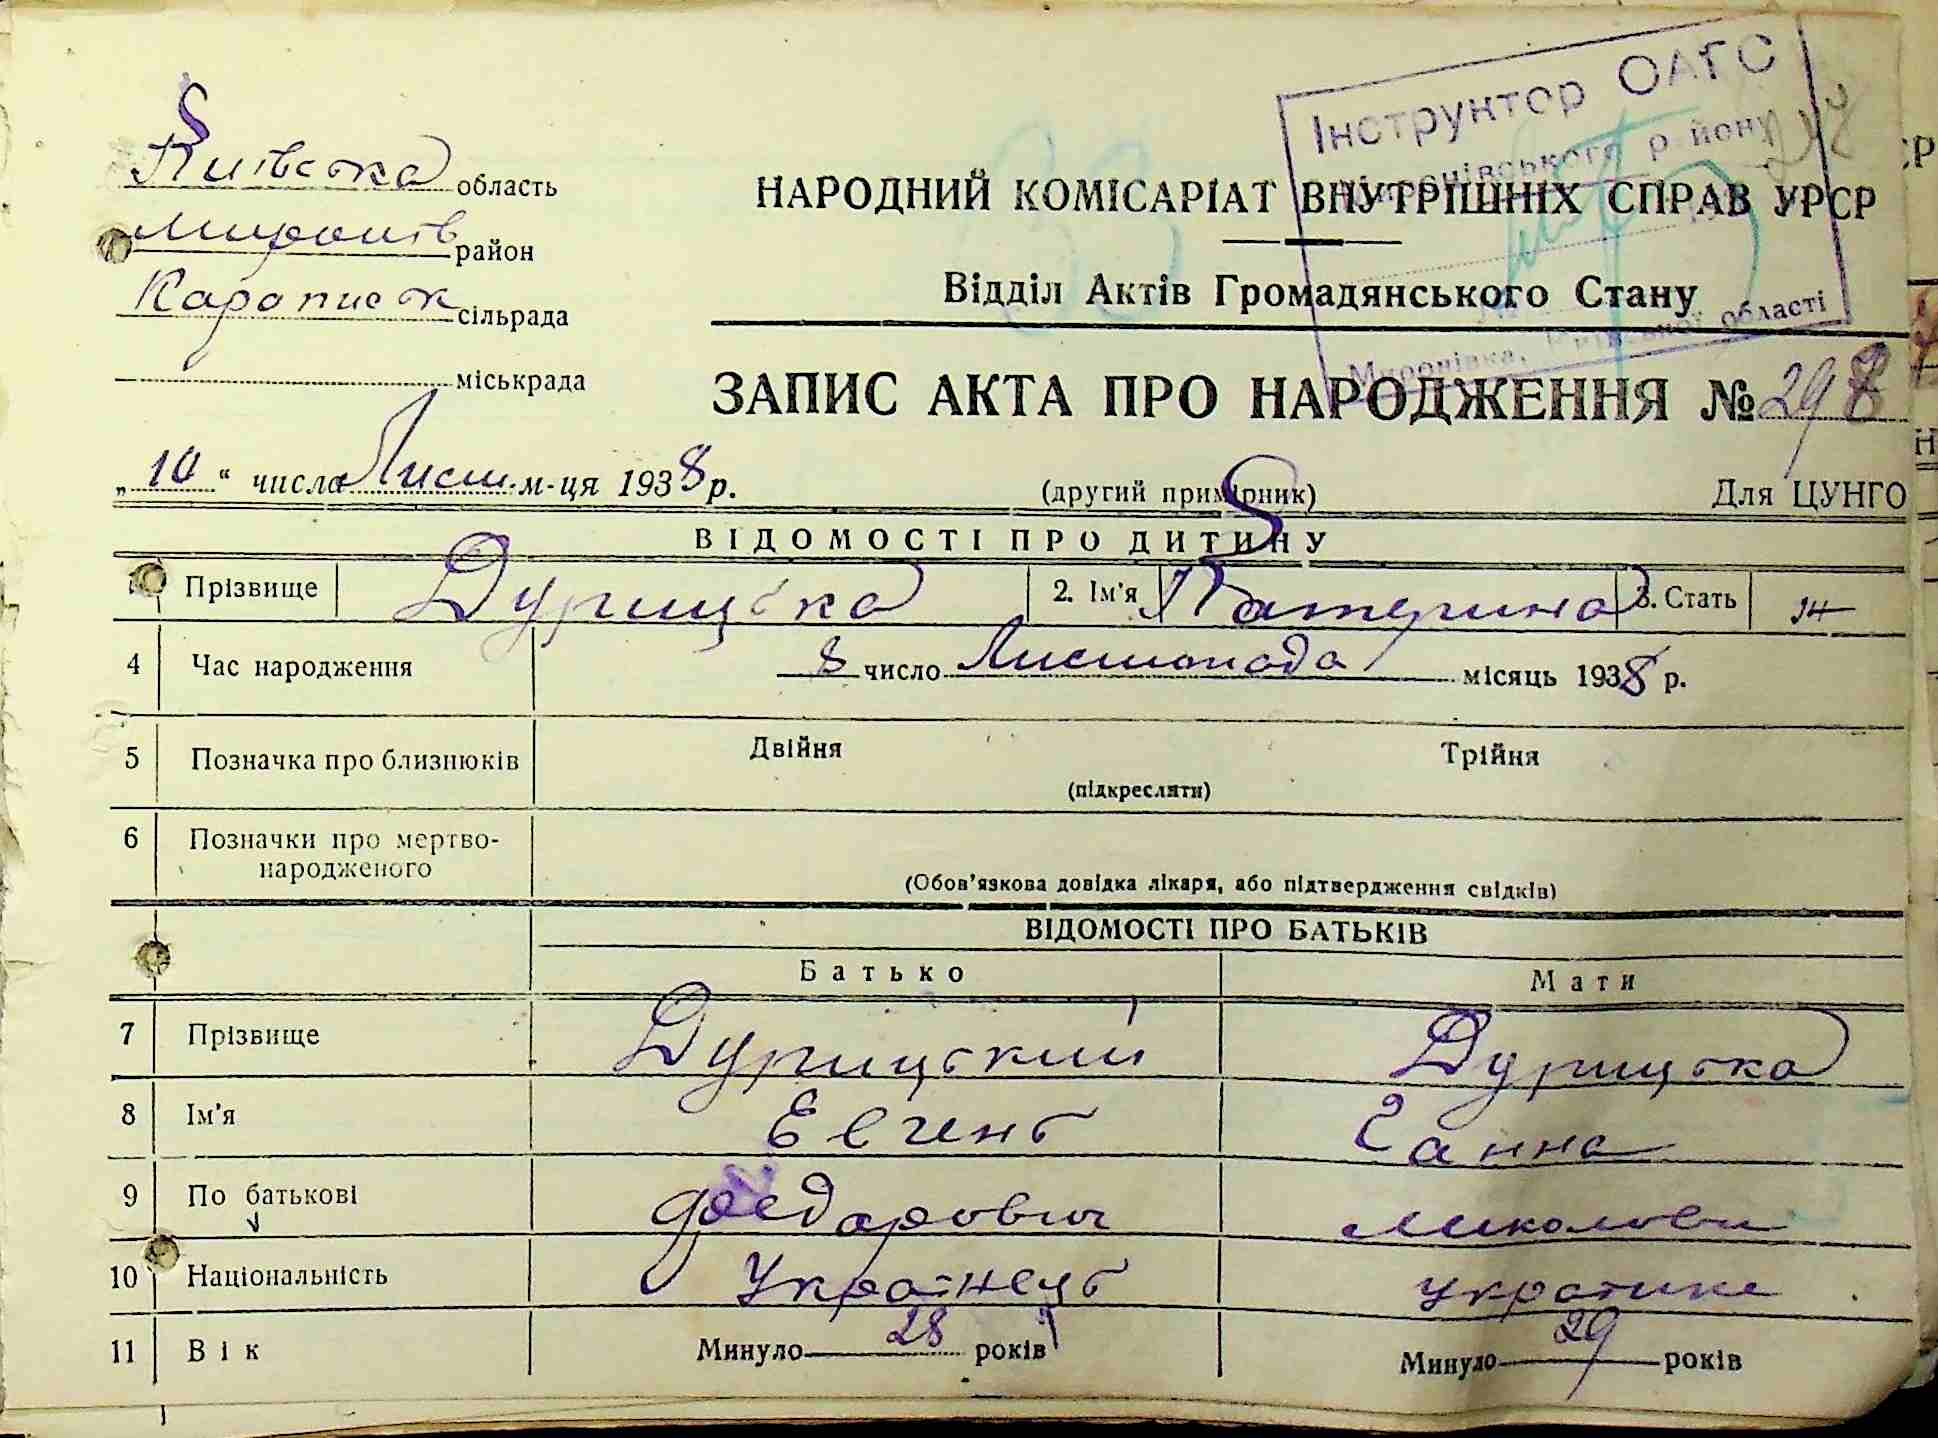 Інструктор ОАГС
Миронівського району
Миронівка, Київської області
Київська область
Миронів район
Караписьк сільрада
міськрада
НАРОДНИЙ КОМІСАРІАТ ВНУТРІШНІХ СПРАВ УРСР
Відділ Актів Громадянського Стану
ЗАПИС АКТА ПРО НАРОДЖЕННЯ № 298
„10“ числа Лист. м-ця 1938 р.
(другий примірник)
Для ЦУНГО
ВІДОМОСТІ ПРО ДИТИНУ
Прізвище Дурицька 2. Ім'я Катерина 3. Стать ж
4 Час народження 8 число Листопада місяць 1938 р.
5 Позначка про близнюків Двійня Трійня
(підкресляти)
6 Позначки про мертво-
народженого
(Обов'язкова довідка лікаря, або підтвердження свідків)
ВІДОМОСТІ ПРО БАТЬКІВ
Батько Мати
7 Прізвище Дурицький Дурицька
8 Ім'я Евгень Ганна
9 По батькові Федарович Миколовн
10 Національність Українець українка
11 Вік Минуло 28 років Минуло 29 років